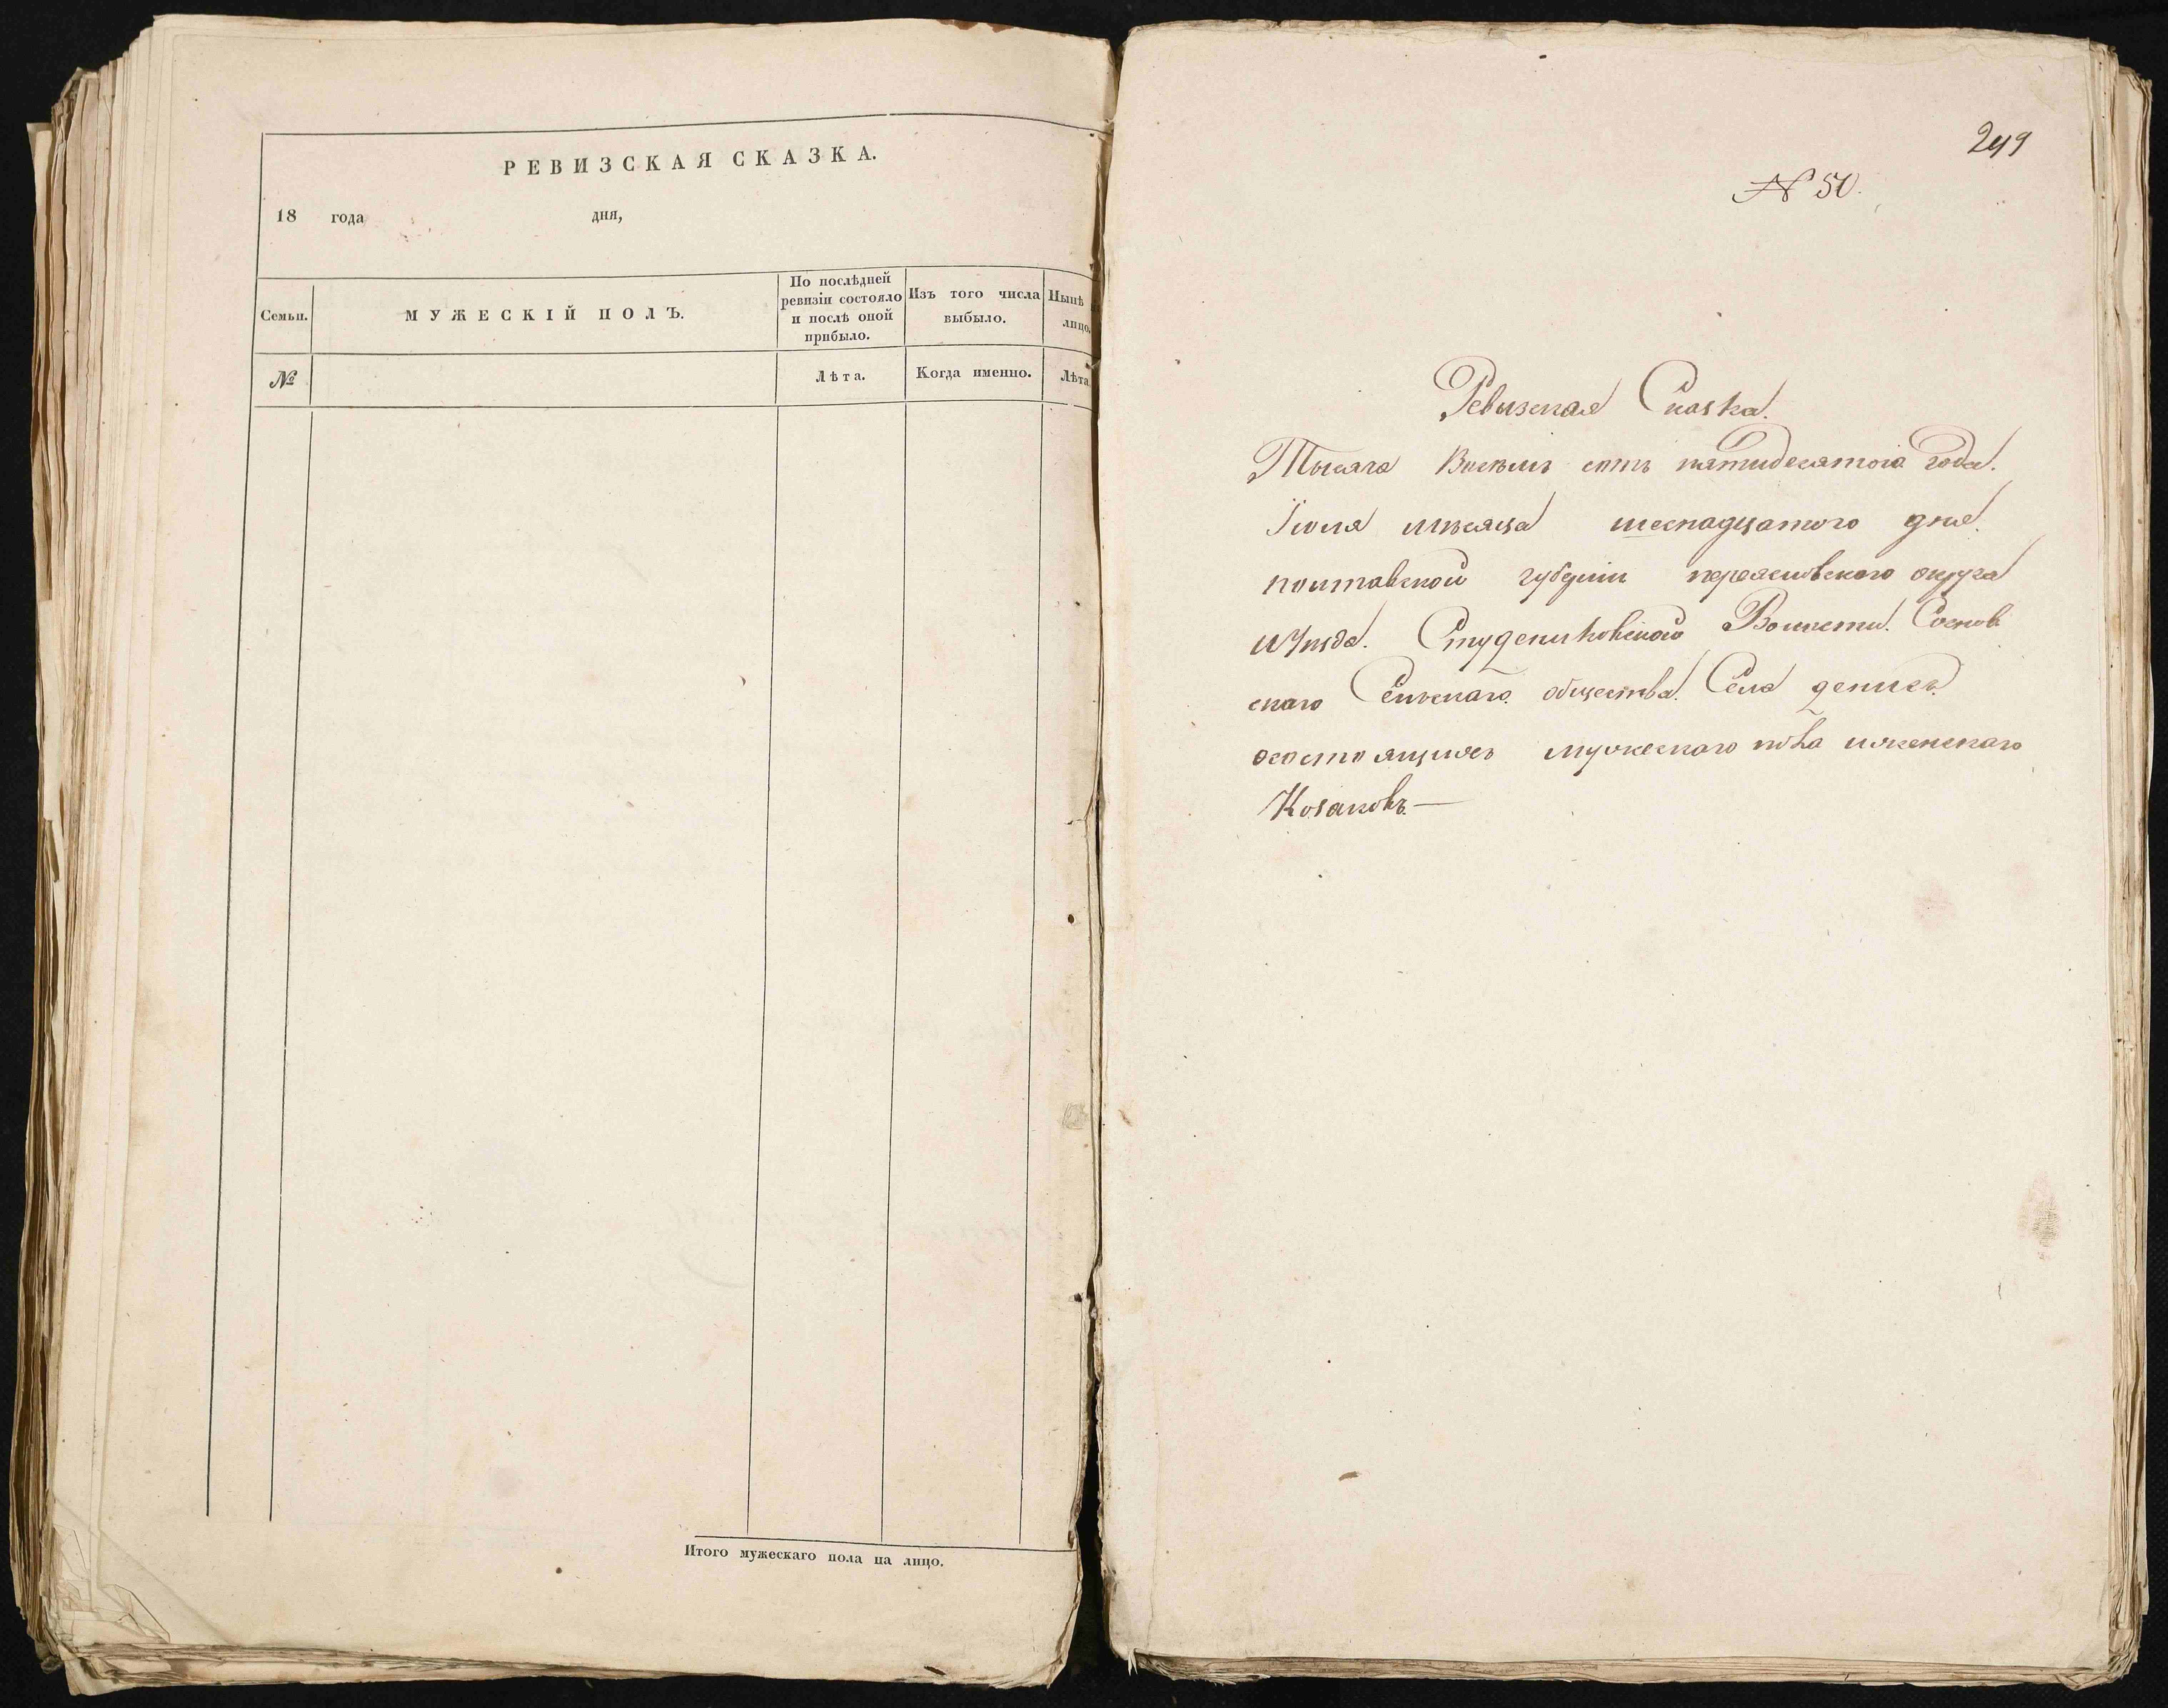 РЕВИЗСКАЯ СКАЗКА.
18 года дня,
Семьи.
МУЖЕСКІЙ ПОЛЪ.
По послѣдней
ревизіи состояло
и послѣ оной
прибыло.
Изъ того числа
выбыло.
Нынѣ
лицо.
№
Лѣта.
Когда именно.
Лѣта
Итого мужескаго пола на лицо.
249
№ 50.
Ревизская Сказка.
Тысяча Восемь сотъ пятидесятого года.
Їюля мѣсяца шеснадцатого дня.
полтавской губерніи переясловского округа
иУѣзда. Студениковской Волости. Соснов
скаго Сельскаго общества. Села денисъ
осостоящихъ мужескаго пола иженскаго
Козаковъ.—